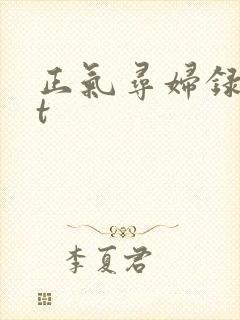 正氣尋婦録
t
李夏君